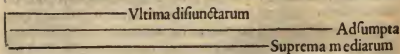 Vltima disiunctarum
Adsumpta
Suprema mediarum